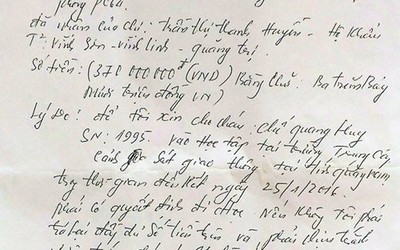 đã nhận của chị: Trần thị thanh Huyền - Hộ Khẩu
Tt: Vĩnh Sơn - Vĩnh Linh - quảng trị.
Số tiền: (370 000 000đ (VND) Bằng chữ: Ba trăm bảy
Mươi triệu đồng VN)
Lý Do: để tôi xin cho cháu: Chế quang Huy
SN: 1995. vào Học tập tại trường Trung Cấp
Cảnh Sát giao thông tại tỉnh quảng nam
trong thời gian đến hết ngày 25/1/2016.
phải có quyết định đi Học Nếu Không Tôi phải
trả lại đầy đủ Số tiền trên và phải chịu trách